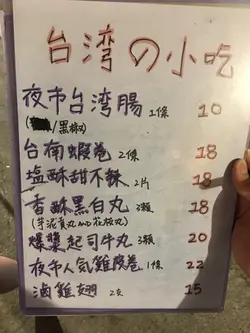 台湾の小吃
夜市台湾腸 1條 10
(/黑椒)
台南蝦卷 2條 18
塩酥甜不辣 2片 18
香酥黑白丸 3顆 18
(芋泥貢丸and花枝丸)
爆漿起司牛丸 3顆 20
夜市人気雞皮卷 1條 22
滷雞翅 2支 15